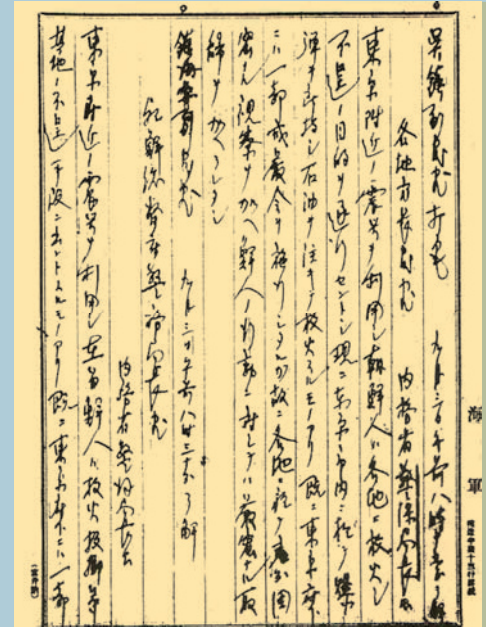 海軍
呉鎮副官宛打電 九月三日午前八時十五分了解
各地方長官宛 内務省警保局長出
東京附近ノ震災ヲ利用シ朝鮮人ハ各地ニ放火シ
不逞ノ目的ヲ遂行セントシ現ニ東京市内ニ於テ爆
弾ヲ所持シ石油ヲ注キテ放火スルモノアリ既ニ東京府
下ニハ一部戒厳令ヲ施行シタルカ故ニ各地ニ於テ充分周
密ナル視察ヲ加ヘ鮮人ノ行動ニ対シテハ厳密ナル取
締ヲ加ヘラレタシ
鎮海要 副官宛 九月三日午前八時三十分了解
朝鮮総督府警務局長宛
内務省警保局長出
東京附近ノ震災ヲ利用シ在留鮮人ハ放火投擲等
其他ノ不逞手段ニ出ントスルモノアリ既ニ東京府下ニハ一部